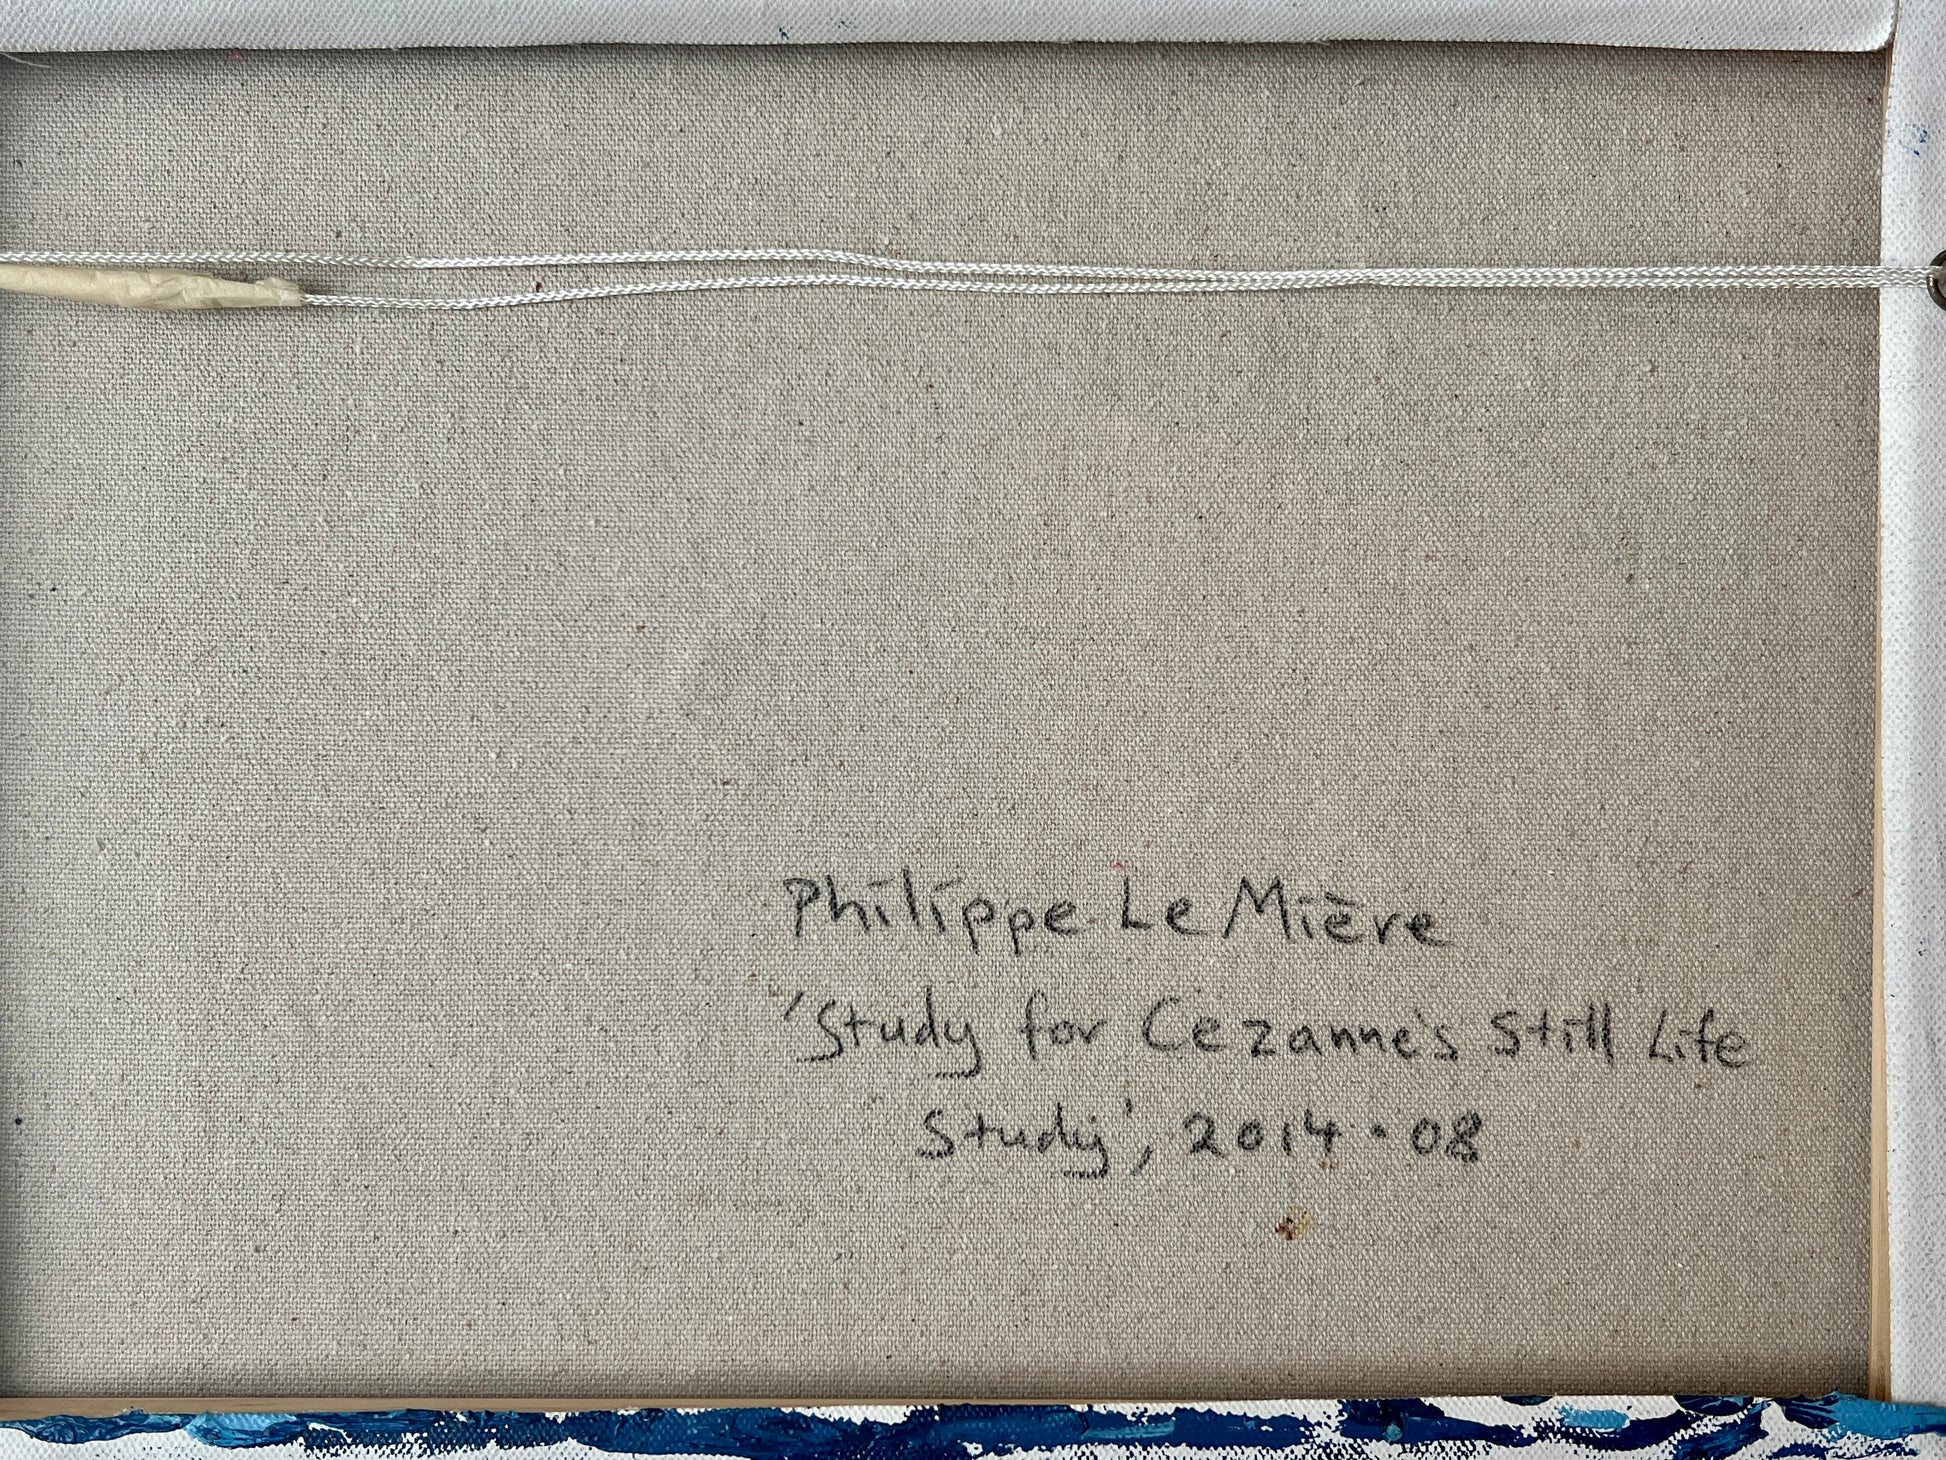 Philippe Le Mière
'Study for Cezanne's Still Life
Study', 2014 · 08